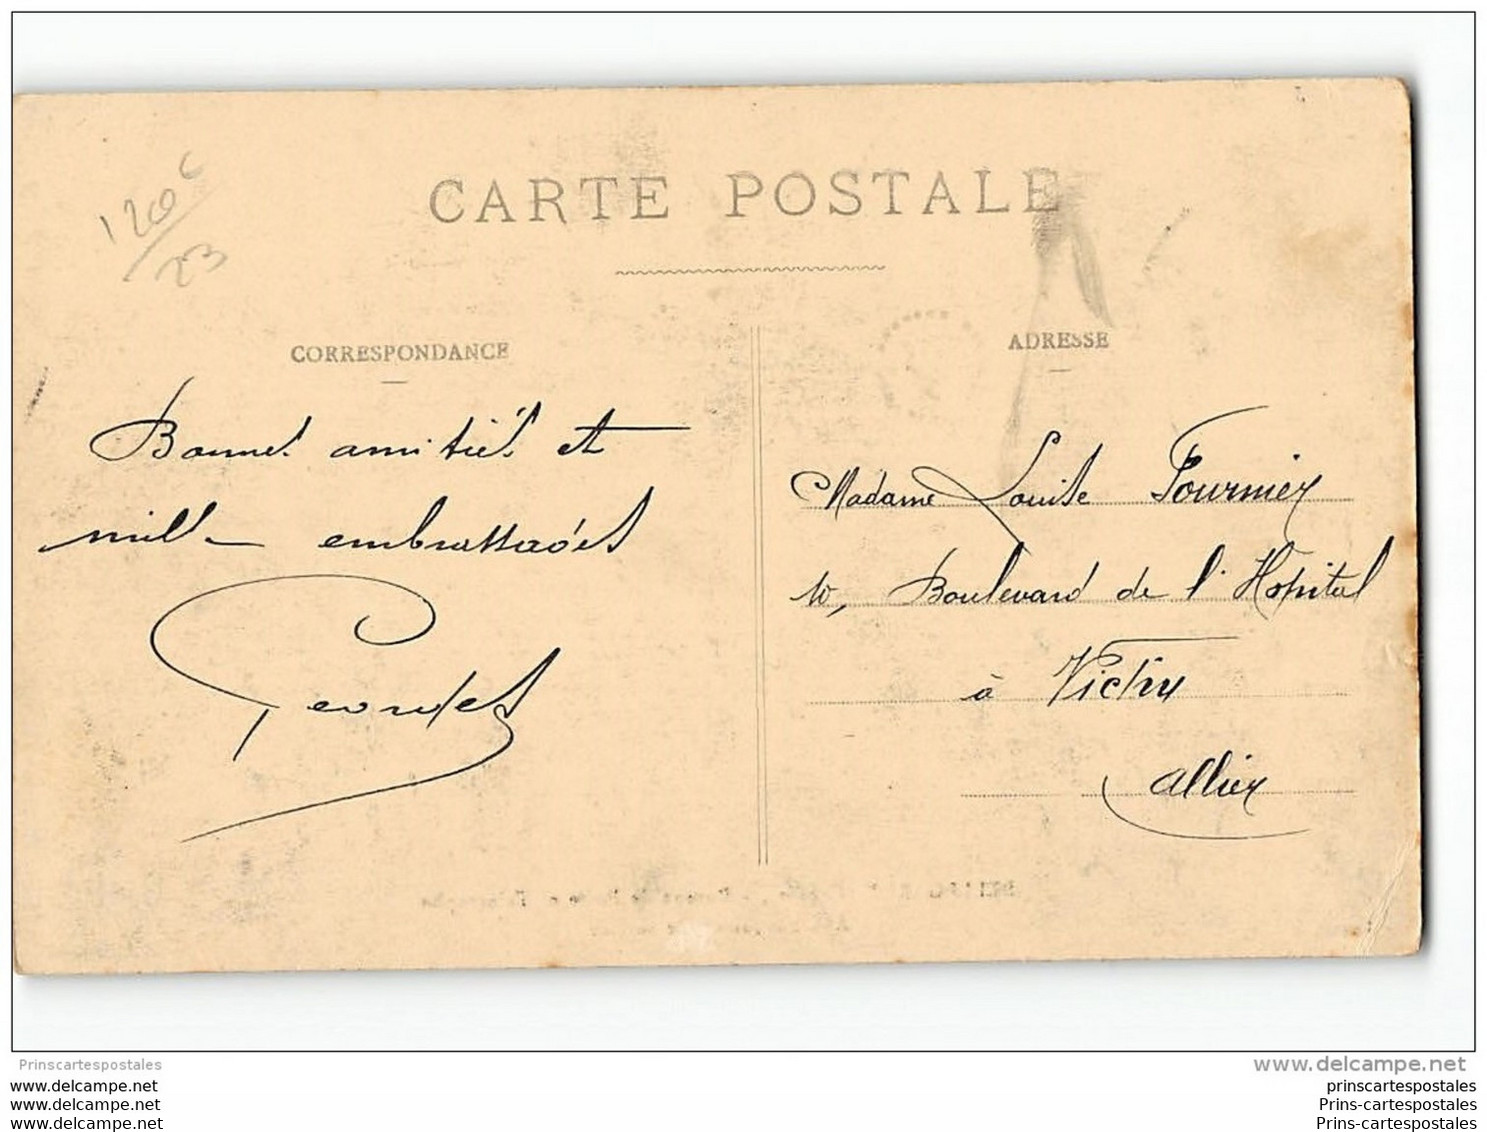 120 c
23
CARTE POSTALE
CORRESPONDANCE
Bonnes amitiés et
mille embrassées
Georges
ADRESSE
Madame Louise Fournier
10, Boulevard de l'Hopital
à Vichy
Allier
Prinscartespostales
www.delcampe.net
www.delcampe.net
www.delcampe.net
www.delcampe.net
prinscartespostales
Prins-cartespostales
Prins-cartespostales